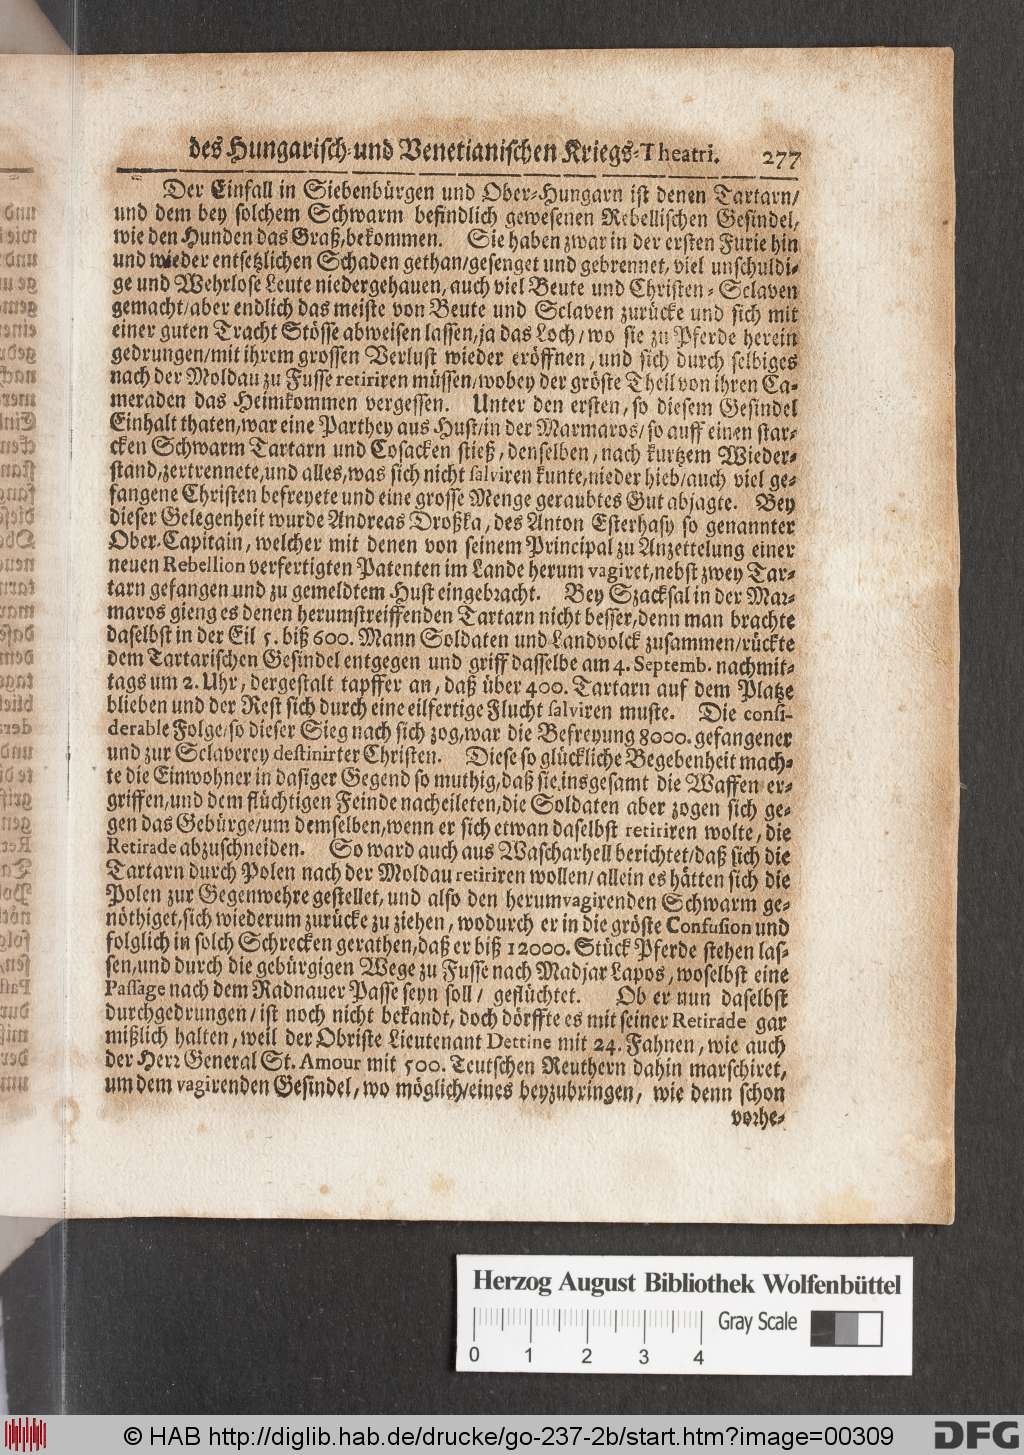 des Hungarisch-und Venetianischen Kriegs-Theatri. 277
Der Einfall in Siebenbürgen und Ober-Hungarn ist denen Tartarn/
und dem bey solchem Schwarm befindlich gewesenen Rebellischen Gesindel,
wie den Hunden das Graß,bekommen. Sie haben zwar in der ersten Furie hin
und wieder entsetzlichen Schaden gethan/gesenget und gebrennet, viel unschuldi-
ge und Wehrlose Leute niedergehauen, auch viel Beute und Christen-Sclaven
gemacht/aber endlich das meiste von Beute und Sclaven zurücke und sich mit
einer guten Tracht Stösse abweisen lassen,ja das Loch/wo sie zu Pferde herein
gedrungen/mit ihrem grossen Verlust wieder eröffnen, und sich durch selbiges
nach der Moldau zu Fusse retiriren müssen/wobey der gröste Theil von ihren Ca-
meraden das Heimkommen vergessen. Unter den ersten, so diesem Gesindel
Einhalt thaten,war eine Parthey aus Hust/in der Marmaros/so auff einen star-
cken Schwarm Tartarn und Cosacken stieß, denselben, nach kurtzem Wieder-
stand,zertrennete,und alles,was sich nicht salviren kunte,nieder hieb/auch viel ge-
fangene Christen befreyete und eine grosse Menge geraubtes Gut abjagte. Bey
dieser Gelegenheit wurde Andreas Droßka, des Anton Esterhasy so genannter
Ober-Capitain, welcher mit denen von seinem Principal zu Anzettelung einer
neuen Rebellion verfertigten Patenten im Lande herum vagiret,nebst zwey Tar-
tarn gefangen und zu gemeldtem Hust eingebracht. Bey Szacksal in der Mar-
maros gieng es denen herumstreiffenden Tartarn nicht besser,denn man brachte
daselbst in der Eil 5. biß 600. Mann Soldaten und Landvolck zusammen/rückte
dem Tartarischen Gesindel entgegen und griff dasselbe am 4. Septemb. nachmit-
tags um 2. Uhr, dergestalt tapffer an, daß über 400. Tartarn auf dem Platze
blieben und der Rest sich durch eine eilfertige Flucht salviren muste. Die consi-
derable Folge/so dieser Sieg nach sich zog,war die Befreyung 8000. gefangener
und zur Sclaverey destinirter Christen. Diese so glückliche Begebenheit mach-
te die Einwohner in dasiger Gegend so muthig,daß sie insgesamt die Waffen er-
griffen,und dem flüchtigen Feinde nacheileten,die Soldaten aber zogen sich ge-
gen das Gebürge/um demselben,wenn er sich etwan daselbst retiriren wolte, die
Retirade abzuschneiden. So ward auch aus Wascharhell berichtet/daß sich die
Tartarn durch Polen nach der Moldau retiriren wollen/allein es hätten sich die
Polen zur Gegenwehre gestellet,und also den herumvagirenden Schwarm ge-
nöthiget,sich wiederum zurücke zu ziehen, wodurch er in die gröste Confusion und
folglich in solch Schrecken gerathen,daß er biß 12000. Stück Pferde stehen las-
sen,und durch die gebürgigen Wege zu Fusse nach Madjar Lapos, woselbst eine
Passage nach dem Radnauer Passe seyn soll/ geflüchtet. Ob er nun daselbst
durchgedrungen/ist noch nicht bekandt, doch dörffte es mit seiner Retirade gar
mißlich halten, weil der Obriste Lieutenant Dettine mit 24. Fahnen, wie auch
der Herr General St. Amour mit 500. Teutschen Reuthern dahin marschiret,
um dem vagirenden Gesindel, wo möglich/eines beyzubringen, wie denn schon
vorhe-
Herzog August Bibliothek Wolfenbüttel
Gray Scale
0 1 2 3 4
© HAB http://diglib.hab.de/drucke/go-237-2b/start.htm?image=00309
DFG